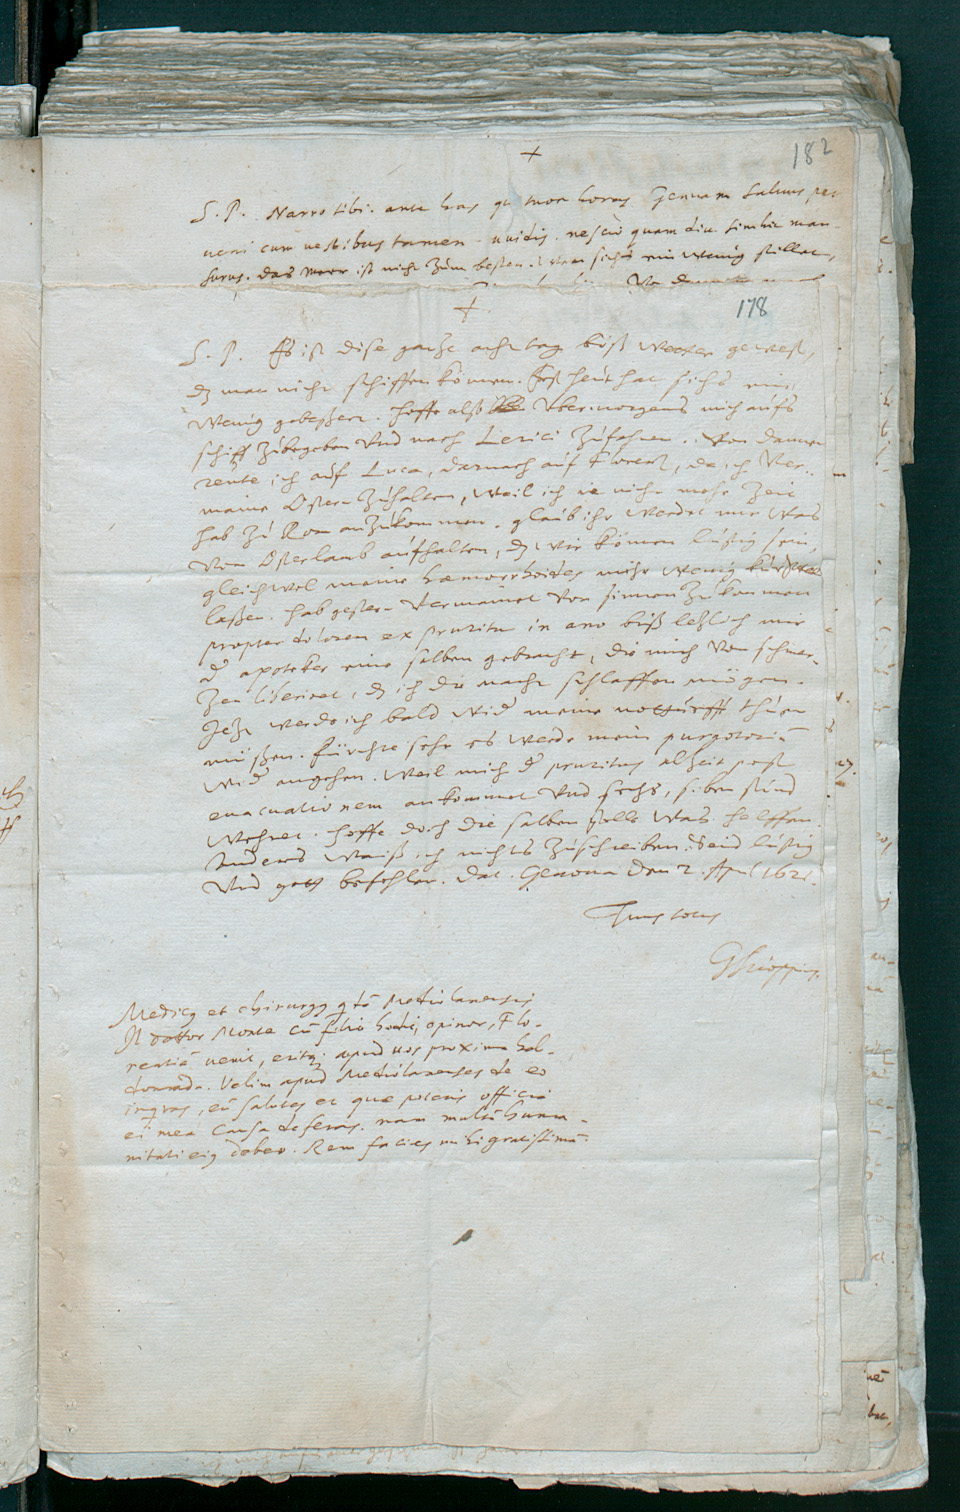 +
182
S. P. Narro tibi. ante has quatuor horas Genuam salvus per
veni cum vestibus tamen uvidis. nescio quam diu sim hic man-
surus. das meer ist nicht zum besten. wan sichs ein wenig stillet,
Von dannen
+
178
S. P. Es ist dise gantze acht tag böß wetter gewest,
dz man nicht schiffen können. Erst heut hat sichs ein
wenig gebeßert. hoffe alß ubermorgens mich aufs
schiff zubegeben und nach Lerici zufahren. Von dannen
reute ich auf Luca, darnach auf Florentz, da ich ver-
meine Ostern zuhalten, weil ich ie nicht mehr zeit
hab zu Rom anzukommen. glaub ihr werdet mir was
vom Osterlamb aufhalten, dz wir können lustig sein,
gleichwol meine haemorrhoides mich wenig
laßen. hab gestern vermainet von sinnen zukommen
propter dolorem ex pruritu in ano biß letzlich mir
d apoteker eine salben gebracht, die mich vom schmer-
zen liberiret, dz ich die nacht schlaffen mögen.
Jetzt werde ich bald wid meine notturfft thuen
müßen. fürchte sehr es werde mein purgatoriu
wid angehen. weil mich d pruritus alzeit post
evacuationem ankommet und sechs, siben stund
wehret. hoffe doch die salben solle was helffen.
Anders waiß ich nichts zuschreiben. Seid lustig
und gott befohlen. Dat. Genova den 2. April 1621.
Tuus totus
GScioppius.
Medicus et chirurgus Mediolanensis
Il dottor Monte cu filio hodie, opinor, Flo-
rentia venit, eritq. apud vos proxima heb-
domada. Velim apud Mediolanenses de eo
inqras, eu salutes et quae poteris officia
ei mea causa deferas. nam multu huma-
nitati eius debeo. Rem facies mihi gratissima.